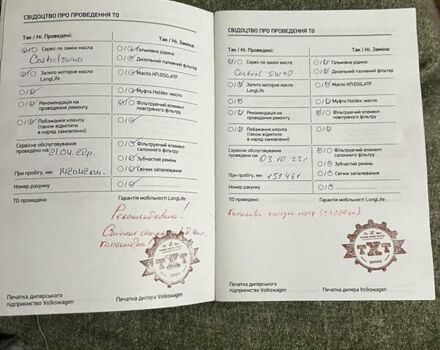 СВІДОЦТВО ПРО ПРОВЕДЕННЯ ТО
Так / Ні. Проведені: Так / Ні. Заміна:
Сервіс по заміні масла Гальмівна рідина
Castrol 5w40 Дизельний паливний фільтр
Залито моторне масло LongLife Масло КП,DSG,ATF
Муфта Haldex: масло
Рекомендація на проведення ремонту Фільтруючий елемент повітряного фільтру
Побажання клієнта (також відмітити в наряд замовленні) Фільтруючий елемент салонного фільтру
Сервісне обслуговування проведено на: 21.04.22р. Зубчастий ремінь
При пробігу, км: Свічки запалювання
Номер рахунку
ТО проведено Гарантія мобільності LongLife
Рекомендована
Печатка дилерського підприємство Volkswagen
Печатка дилера Volkswagen
СВІДОЦТВО ПРО ПРОВЕДЕННЯ ТО
Так / Ні. Проведені: Так / Ні. Заміна:
Сервіс по заміні масла Гальмівна рідина
Castrol 5W40 Дизельний паливний фільтр
Залито моторне масло LongLife Масло КП,DSG,ATF
Муфта Haldex: масло
Рекомендація на проведення ремонту Фільтруючий елемент повітряного фільтру
Побажання клієнта (також відмітити в наряд замовленні)
Сервісне обслуговування проведено на: 03.10.22р Фільтруючий елемент салонного фільтру
Зубчастий ремінь
При пробігу, км: 151461 Свічки запалювання
Номер рахунку
ТО проведено Гарантія мобільності LongLife
Печатка дилерського підприємство Volkswagen
Печатка дилера Volkswagen